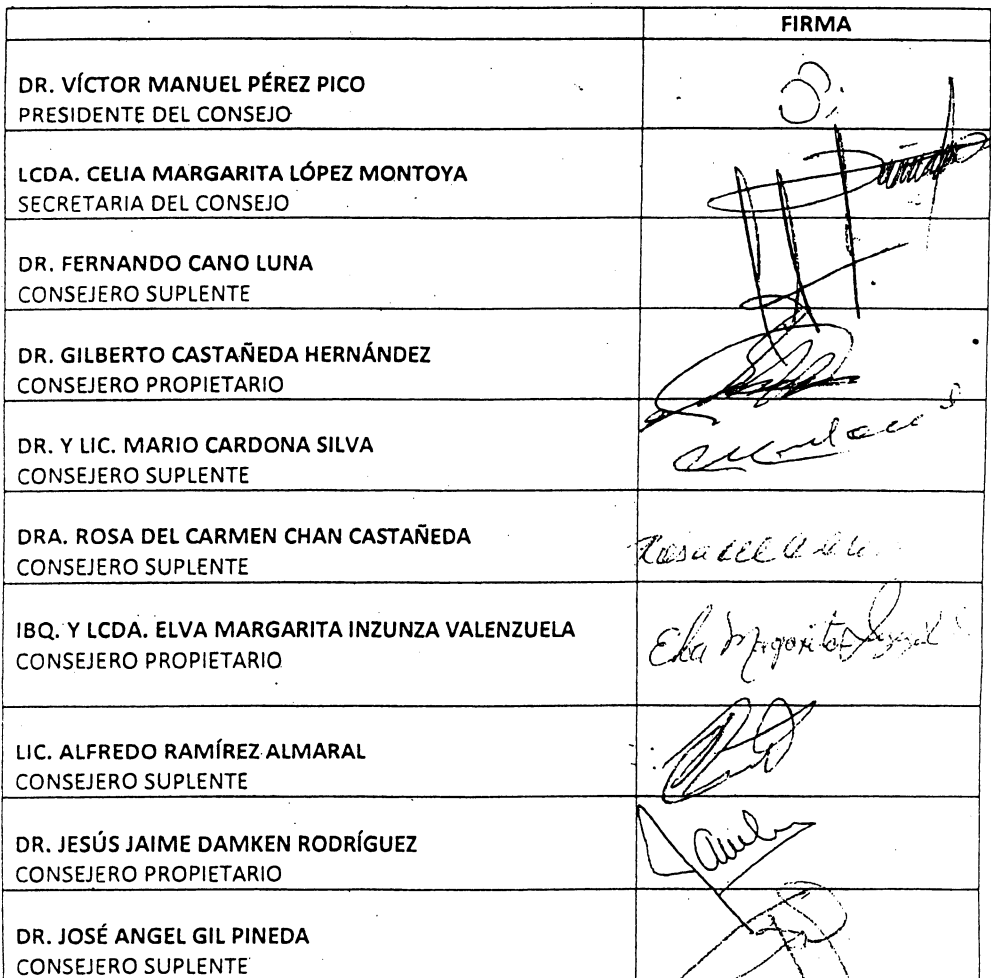 FIRMA
DR. VÍCTOR MANUEL PÉREZ PICO
PRESIDENTE DEL CONSEJO
LCDA. CELIA MARGARITA LÓPEZ MONTOYA
SECRETARIA DEL CONSEJO
DR. FERNANDO CANO LUNA
CONSEJERO SUPLENTE
DR. GILBERTO CASTAÑEDA HERNÁNDEZ
CONSEJERO PROPIETARIO
DR. Y LIC. MARIO CARDONA SILVA
CONSEJERO SUPLENTE
DRA. ROSA DEL CARMEN CHAN CASTAÑEDA
CONSEJERO SUPLENTE
IBQ. Y LCDA. ELVA MARGARITA INZUNZA VALENZUELA
CONSEJERO PROPIETARIO
LIC. ALFREDO RAMÍREZ ALMARAL
CONSEJERO SUPLENTE
DR. JESÚS JAIME DAMKEN RODRÍGUEZ
CONSEJERO PROPIETARIO
DR. JOSÉ ANGEL GIL PINEDA
CONSEJERO SUPLENTE